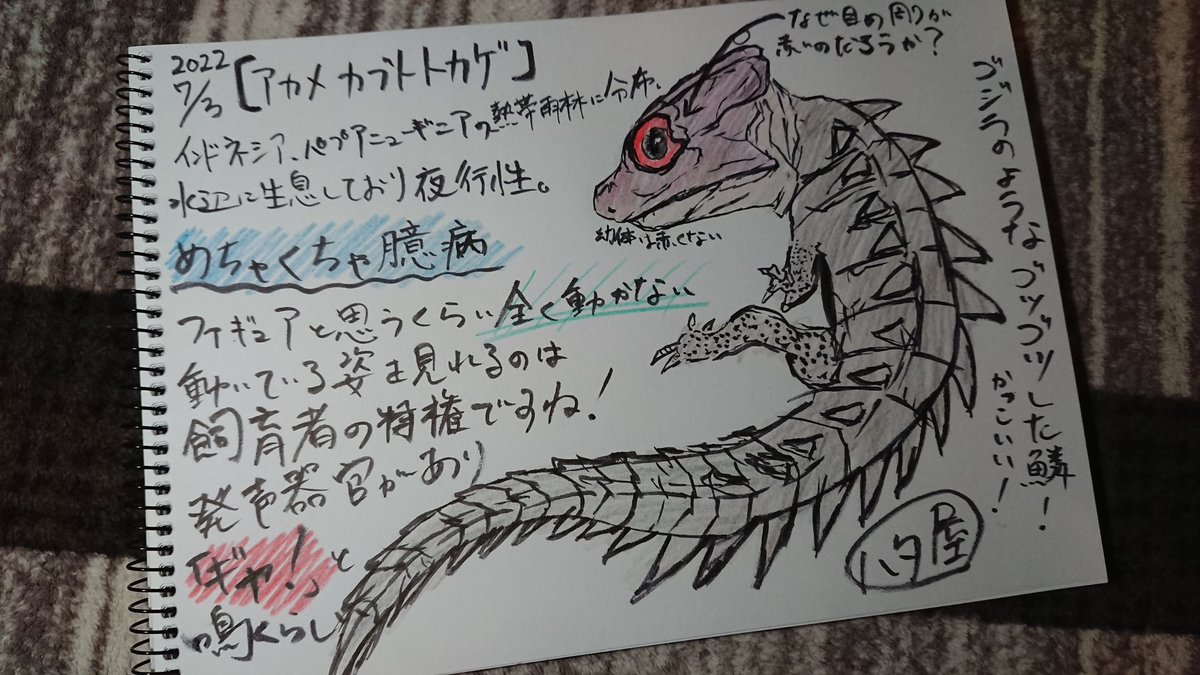 2022
7/3
[アカメ カブトトカゲ]
インドネシア、パプアニューギニアの熱帯雨林に分布、
水辺に生息しており夜行性。
めちゃくちゃ臆病
フィギュアと思うくらい全く動かない
動いている姿を見れるのは
飼育者の特権ですね!
発声器官があり
「ギャ!」と
鳴くらしい
なぜ目の周りが
赤いのだろうか?
幼体は赤くない
ゴジラのようなゴツゴツした鱗!
かっこいい!